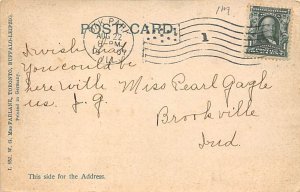 POST-CARD.
149
AUG 22
1
I wish that
you could be
here with
us. J. G.
Miss Pearl Gagle
Brookville
Ind.
This side for the Address.
L 882. W. G. MacFARLANE, TORONTO, BUFFALO-LEIPZIG.
Printed in Germany.